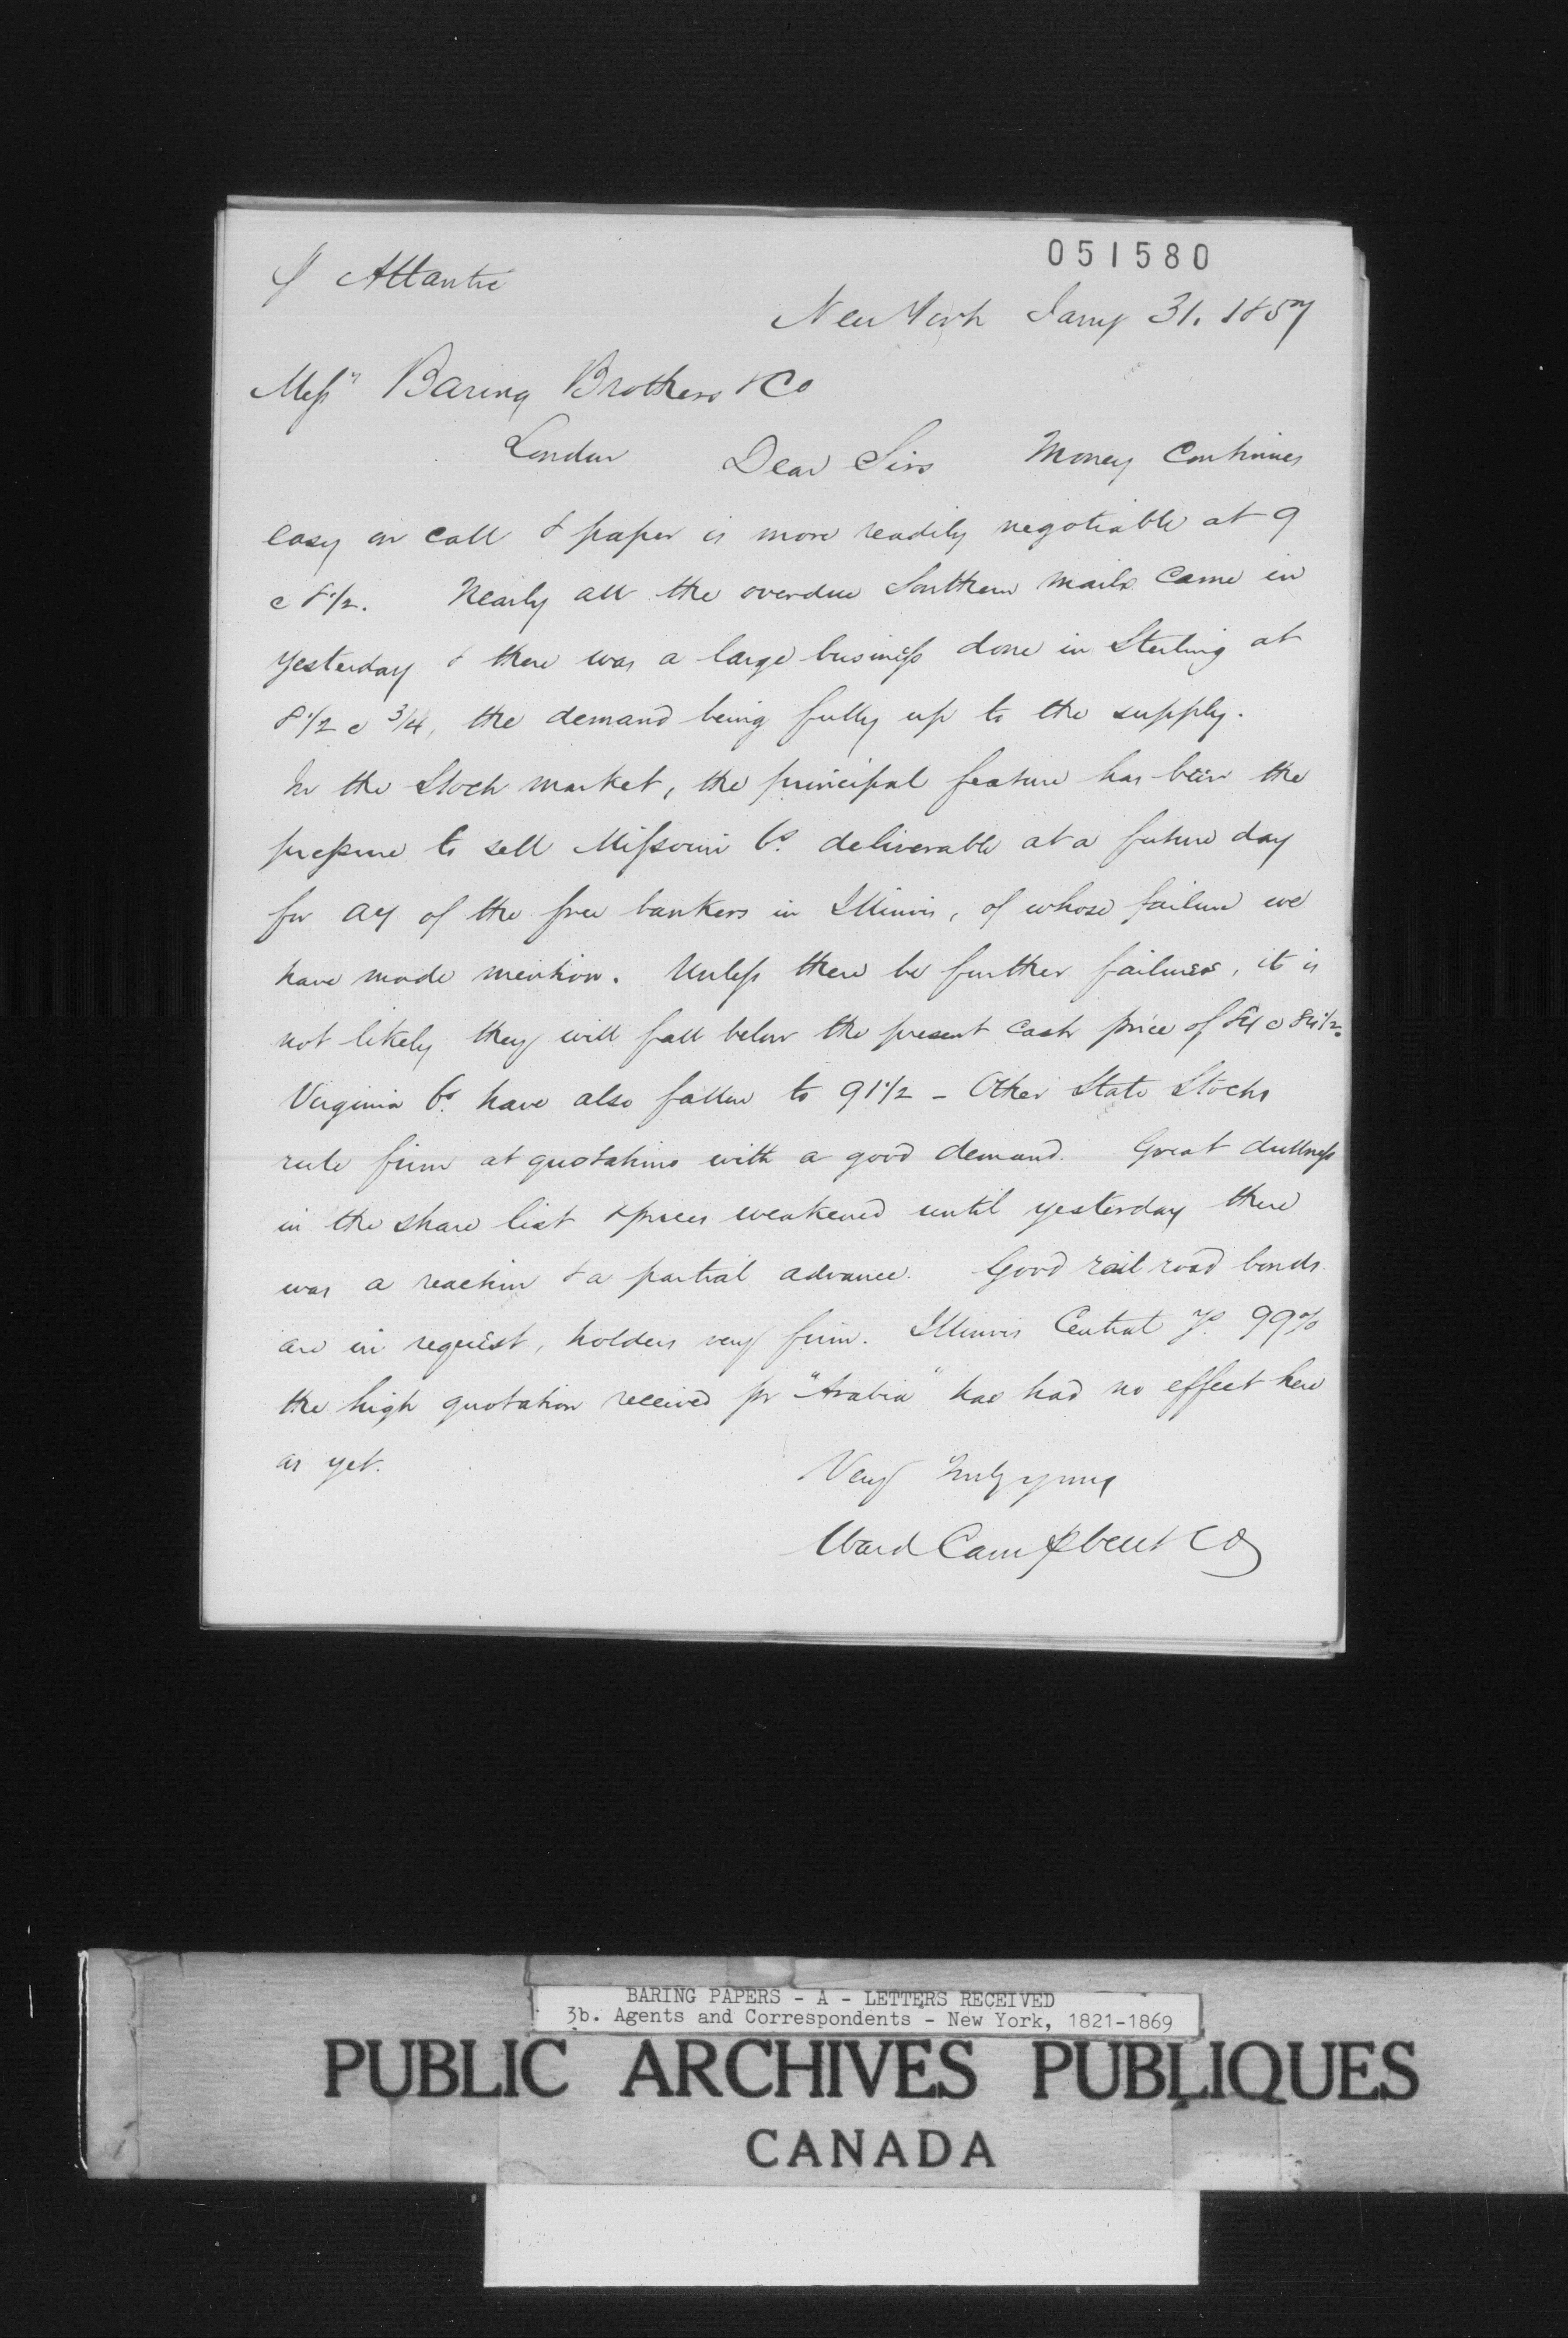 051580
℘ Atlantic
New York Jany 31. 1857
Messrs Baring Brothers & Co
London Dear Sirs Money Continues
easy on call & paper is more readily negotiable at 9
@ 8 1/2. Nearly all the overdue Southern mails came in
yesterday & there was a large business done in Sterling at
8 1/2 @ 3/4, the demand being fully up to the supply.
In the Stock market, the principal feature has been the
pressure to sell Missouri 6s. deliverable at a future day
for a/c of the free bankers in Illinois, of whose failure we
have made mention. Unless there be further failures, it is
not likely they will fall below the present cash price of 84 @ 84 1/2.
Virginia 6s. have also fallen to 91 1/2 - Other State Stocks
rule firm at quotations with a good demand. Great dullness
in the share list & prices weakened until yesterday there
was a reaction & a partial advance. Good rail road bonds
are in request, holders very firm. Illinois Central 7s. 99%
the high quotation received pr "Arabia" has had no effect here
as yet.
Very truly yours
Ward Campbell & Co
BARING PAPERS - A - LETTERS RECEIVED
3b. Agents and Correspondents - New York, 1821-1869
PUBLIC ARCHIVES PUBLIQUES
CANADA